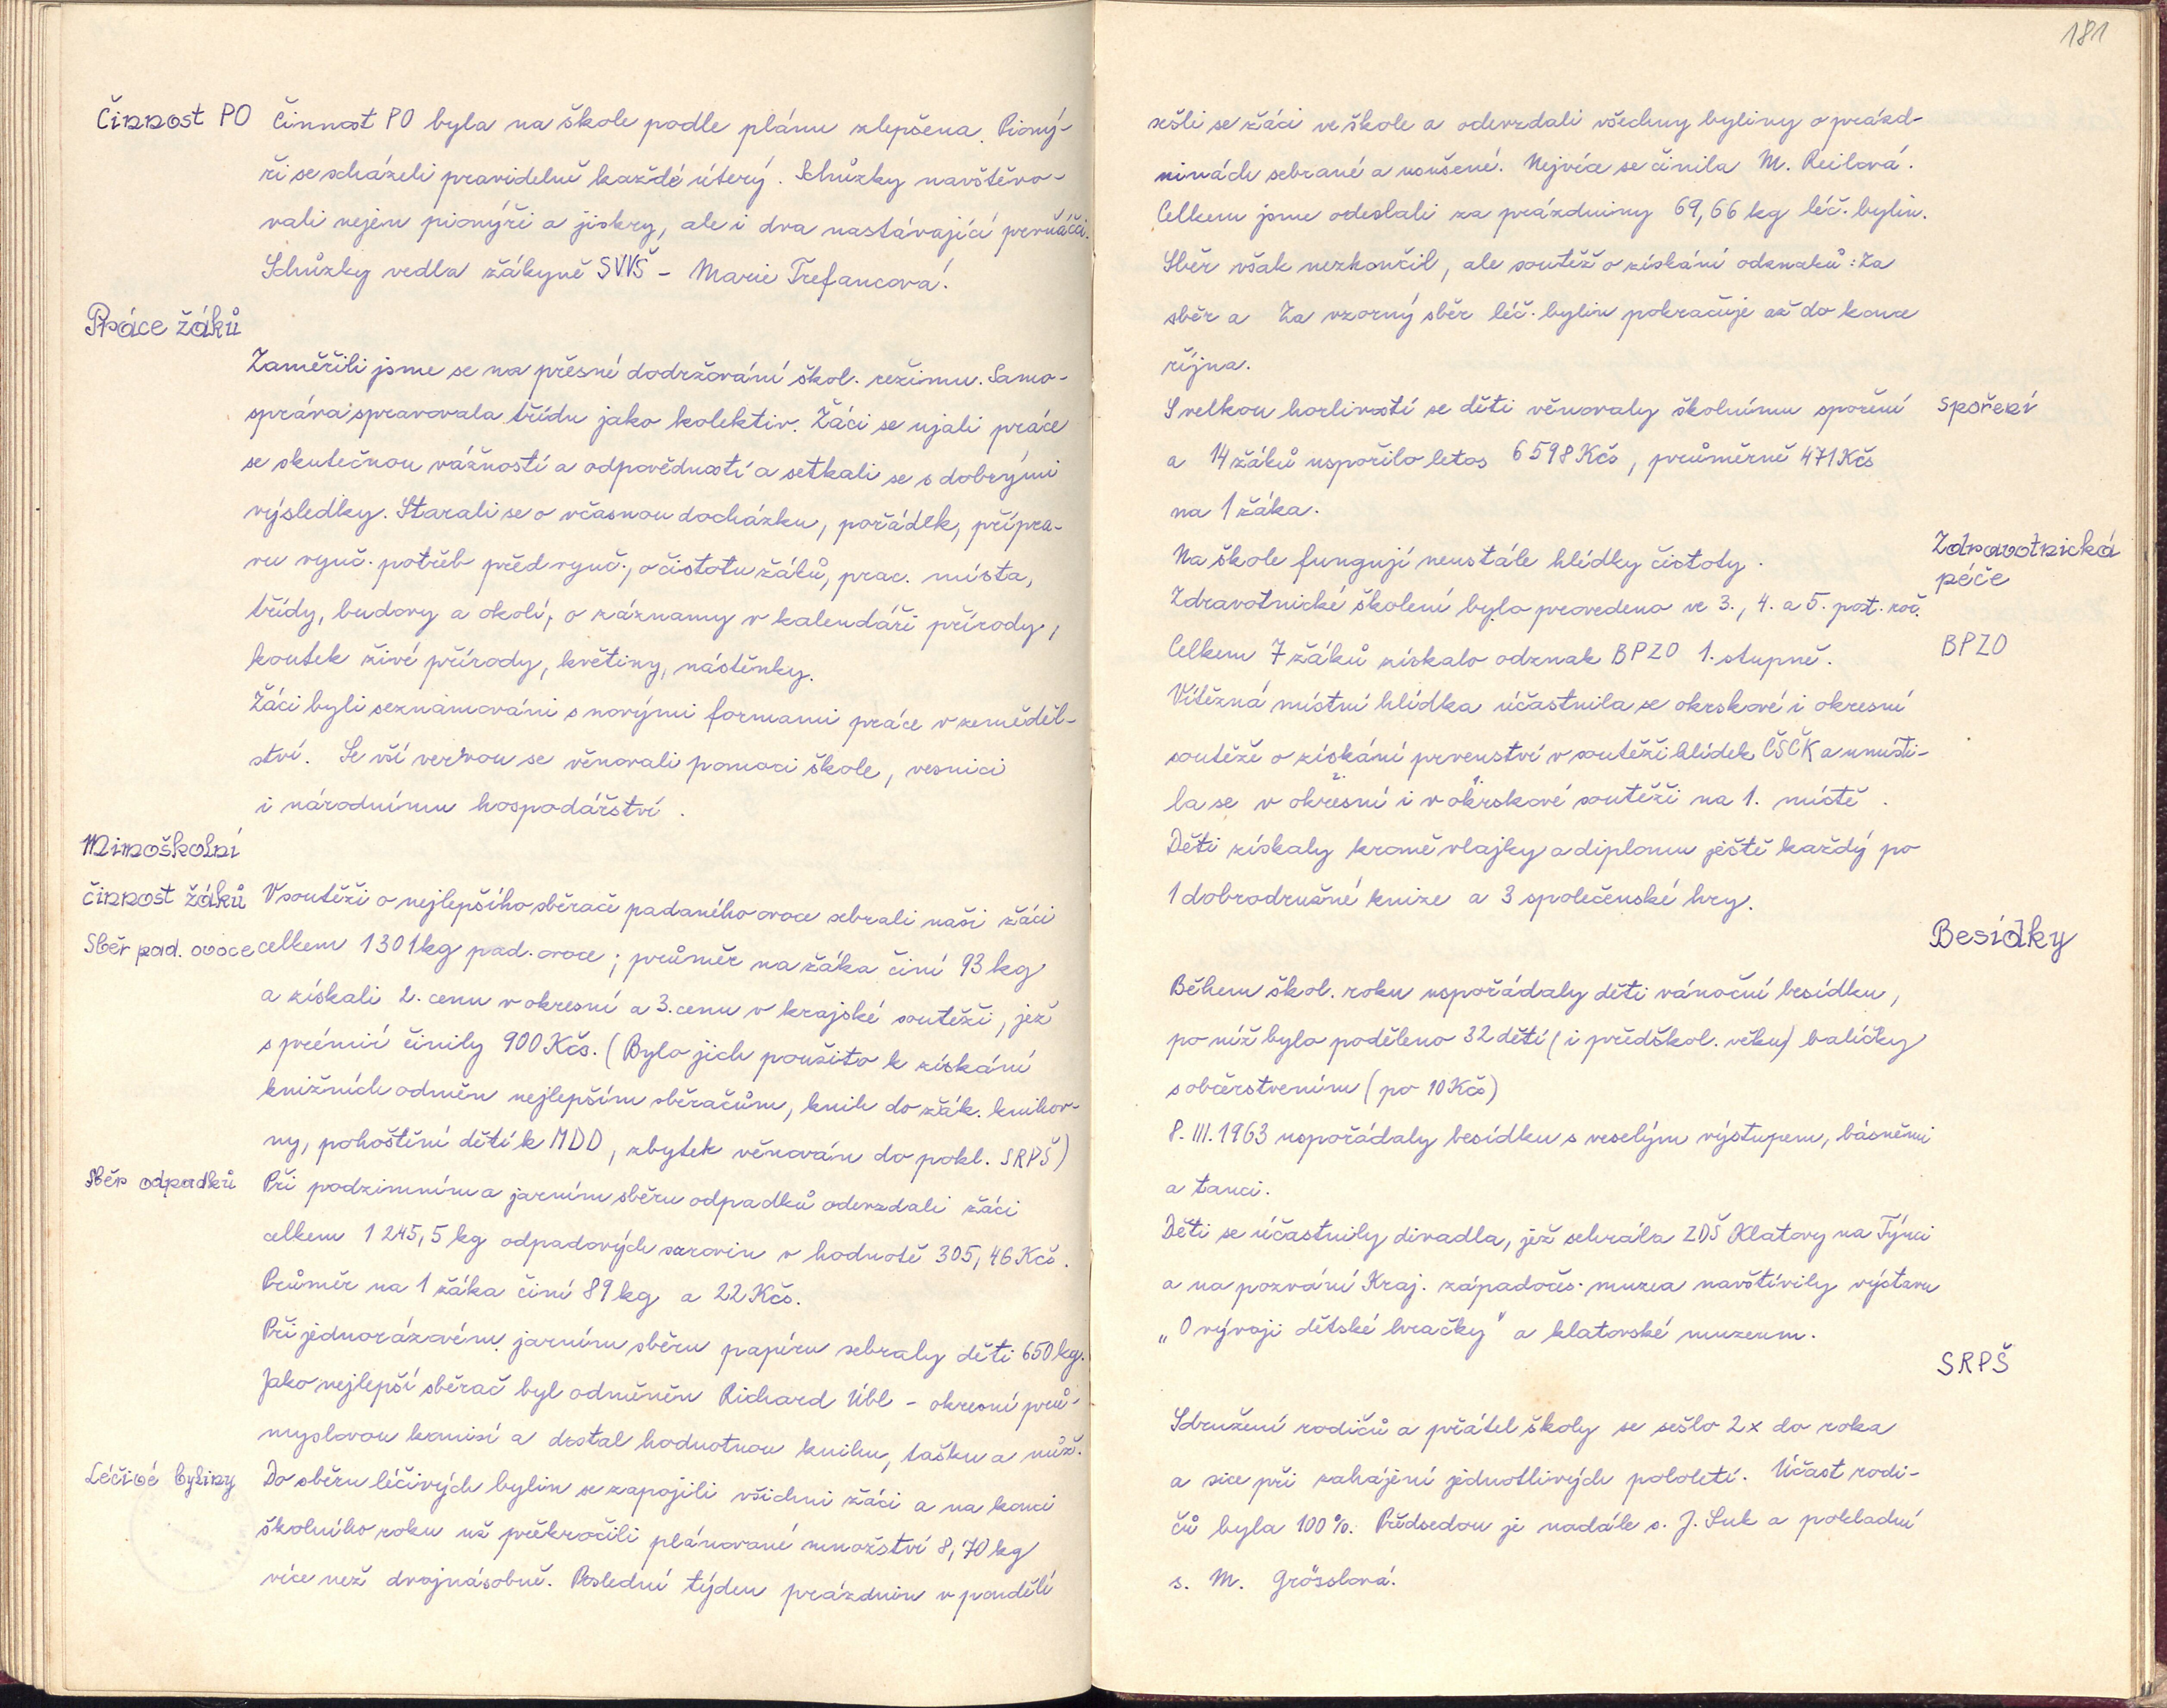 181
Činnost PO
Činnost PO byla na škole podle plánu zlepšena. Pioný-
ři se scházeli pravidelně každé úterý. Schůzky navštěvo-
vali nejen pionýři a jiskry, ale i dva nastávající prvňáčci.
Schůzky vedla žákyně SVVŠ - Marie Trefancová.
Práce žáků
Zaměřili jsme se na přesné dodržování škol. režimu. Samo-
správa spravovala třídu jako kolektiv. Žáci se ujali práce
se skutečnou vážností a odpovědností a setkali se s dobrými
výsledky. Starali se o včasnou docházku, pořádek, přípra-
vu vyuč. potřeb před vyuč., o čistotu žáků, prac. místa,
třídy, budovy a okolí, o záznamy v kalendáři přírody,
koutek živé přírody, květiny, nástěnky.
Žáci byli seznamováni s novými formami práce v zeměděl-
ství. Se vší vervou se věnovali pomoci škole, vesnici
i národnímu hospodářství.
Mimoškolní
činnost žáků
V soutěži o nejlepšího sběrače padaného ovoce sebrali naši žáci
Sběr pad. ovoce
celkem 1301 kg pad. ovoce; průměr na žáka činí 93 kg
a získali 2. cenu v okresní a 3. cenu v krajské soutěži, jež
s prémií činily 900 Kčs. (Bylo jich použito k získání
knižních odměn nejlepším sběračům, knih do žák. knihov-
ny, pohoštění dětí k MDD, zbytek věnován do pokl. SRPŠ)
Sběr odpadků
Při podzimním a jarním sběru odpadků odevzdali žáci
celkem 1 245,5 kg odpadových surovin v hodnotě 305,46 Kčs.
Průměr na 1 žáka činí 89 kg a 22 Kčs.
Při jednorázovém jarním sběru papíru sebraly děti 650 kg.
Jako nejlepší sběrač byl odměněn Richard Übl - okresní prů-
myslovou komisí a dostal hodnotnou knihu, tašku a nůž.
Léčivé byliny
Do sběru léčivých bylin se zapojili všichni žáci a na konci
školního roku už překročili plánované množství 8,70 kg
více než dvojnásobně. Poslední týden prázdnin v pondělí
sešli se žáci ve škole a odevzdali všechny byliny o prázd-
ninách sebrané a usušené. Nejvíce se činila M. Reilová.
Celkem jsme odeslali za prázdniny 69,66 kg léč. bylin.
Sběr však nezkončil, ale soutěž o získání odznaků: Za
sběr a Za vzorný sběr léč. bylin pokračuje až do konce
října.
Spoření
S velkou horlivostí se děti věnovaly školnímu spoření
a 14 žáků uspořilo letos 6 598 Kčs, průměrně 471 Kčs
na 1 žáka.
Zdravotnická
péče
Na škole fungují neustále hlídky čistoty.
Zdravotnické školení bylo provedeno ve 3., 4. a 5. post. roč.
BPZO
Celkem 7 žáků získalo odznak BPZO 1. stupně.
Vítězná místní hlídka účastnila se okrskové i okresní
soutěže o získání prvenství v soutěži hlídek ČSČK a umísti-
la se v okresní i v okrskové soutěži na 1. místě.
2. 1.
Děti získaly kromě vlajky a diplomu ještě každý po
1 dobrodružné knize a 3 společenské hry.
Besídky
Během škol. roku uspořádaly děti vánoční besídku,
po níž bylo poděleno 32 dětí (i předškol. věku) balíčky
s občerstvením (po 10 Kčs)
8. III. 1963 uspořádaly besídku s veselým výstupem, básněmi
a tanci.
Děti se účastnily divadla, jež sehrála ZDŠ Klatovy na Týnci
a na pozvání Kraj. západočes. muzea navštívily výstavu
„O vývoji dětské hračky" a klatovské muzeum.
SRPŠ
Sdružení rodičů a přátel školy se sešlo 2x do roka
a sice při zahájení jednotlivých pololetí. Účast rodi-
čů byla 100%. Předsedou je nadále s. J. Suk a pokladní
s. M. Grösslová.